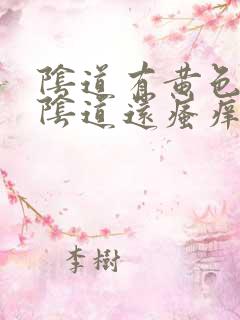 陰道有黃色
陰道還瘙痒
李樹